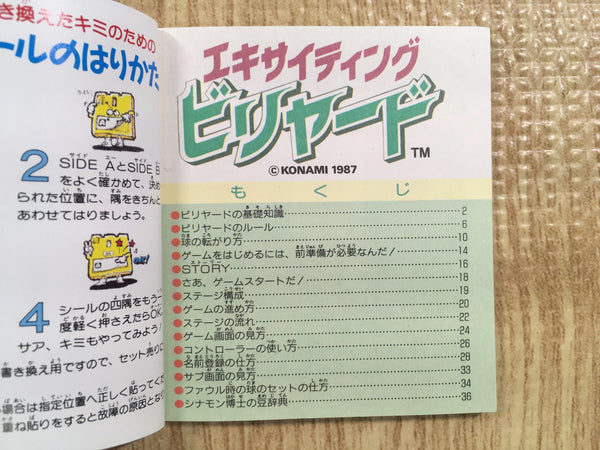 き換えたキミのための
ールのはりかた
2 SIDE AとSIDE B
をよく確かめて、決め
られた位置に、隅をきちんと
あわせてはりましょう。
OK!
4 シールの四隅をもう一
度軽く押さえたらOK。
サア、キミもやってみよう!
書き換え用ですので、セット売り
場合は指定位置へ正しく貼ってくだ
重ね貼りをすると故障の原因とな
エキサイティング
ビリヤード™
© KONAMI 1987
もくじ
●ビリヤードの基礎知識 2
●ビリヤードのルール 6
●球の転がり方 10
●ゲームをはじめるには、前準備が必要なんだ! 14
●STORY 16
●さあ、ゲームスタートだ! 18
●ステージ構成 19
●ゲームの進め方 20
●ステージの流れ 22
●ゲーム画面の見方 24
●コントローラーの使い方 26
●名前登録の仕方 28
●サブ画面の見方 33
●ファウル時の球のセットの仕方 34
●シナモン博士の豆辞典 36